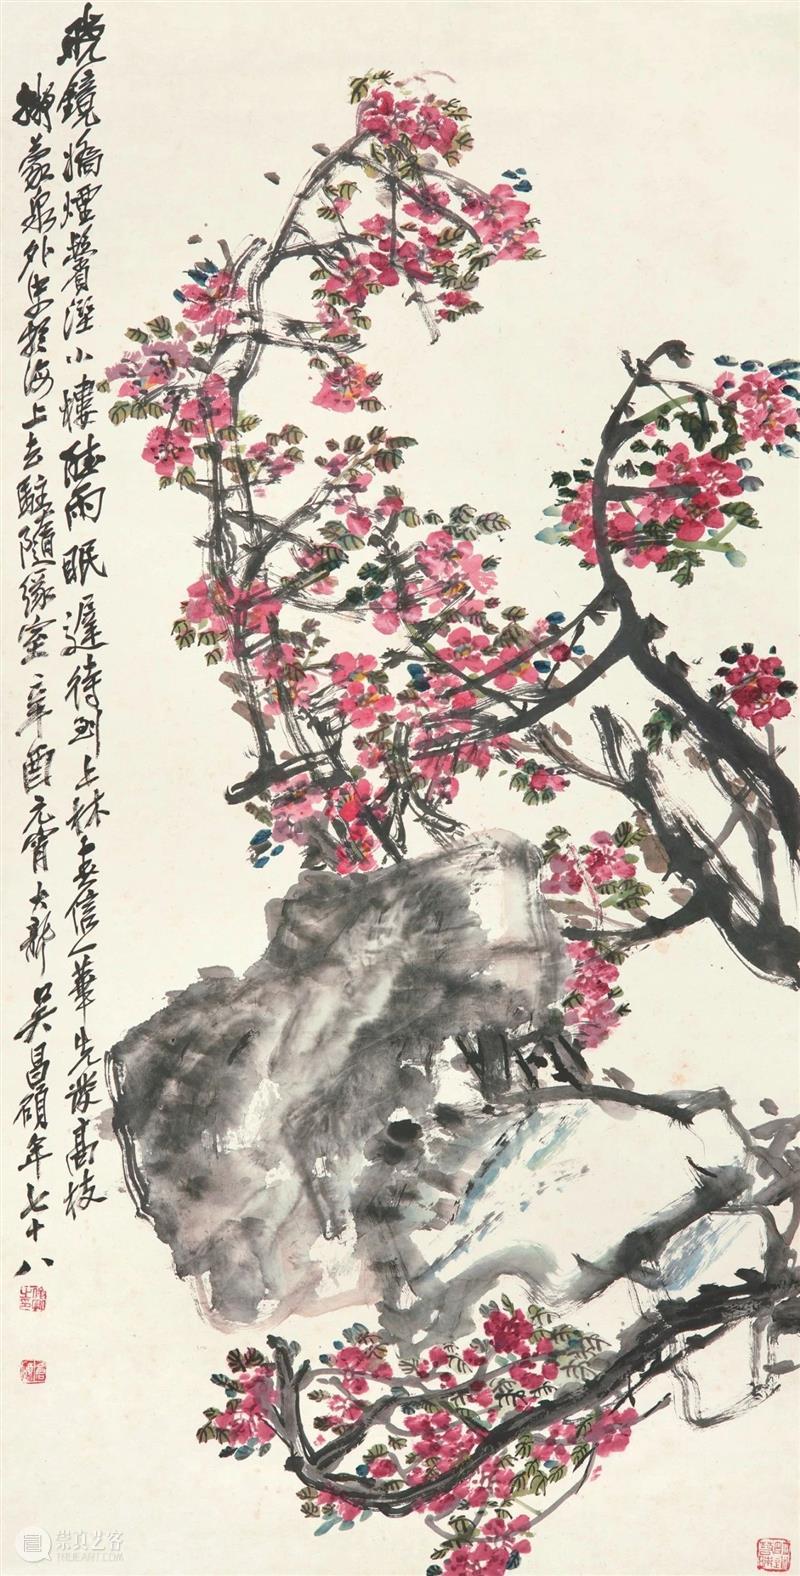 曉鏡嬌煙鬢溼小樓聽雨眠遲待到上林春信一華先發高枝
擬蒙泉外史於海上去駐隨緣室辛酉元宵大聾吳昌碩年七十八
崇真艺客